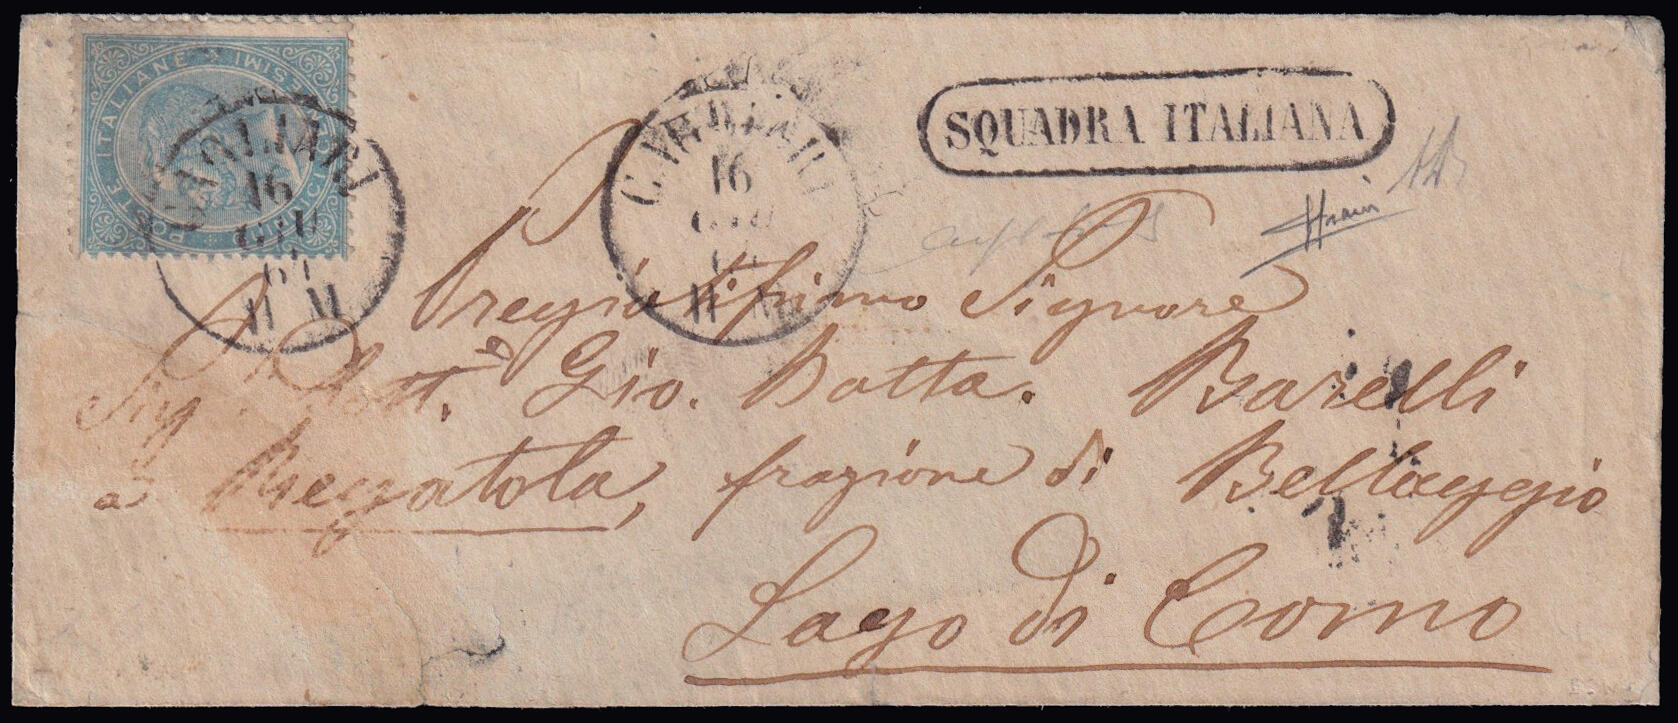 POSTE ITALIANE
QUINDICI CENTESIMI
CAGLIARI
16
GIU
64
11 M
CAGLIARI
16
GIU
64
11 M
SQUADRA ITALIANA
Pregiatissimo Signore
Sig. Dott. Gio. Batta. Barelli
a Regatola, frazione di Bellaggio
Lago di Como